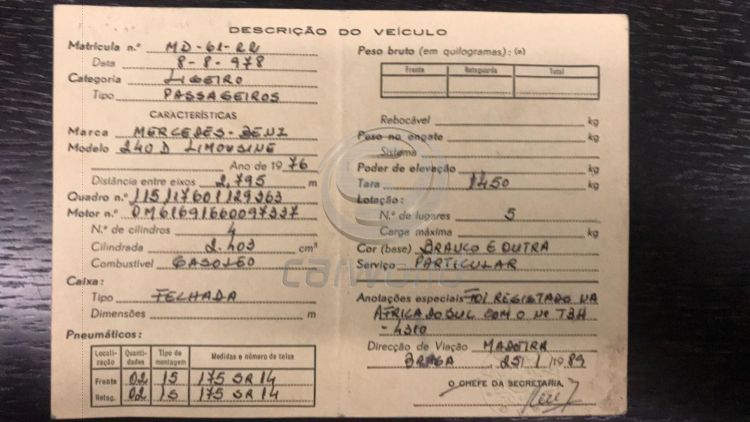 DESCRIÇÃO DO VEÍCULO
Matrícula n.º MD-61-22
Data 8-8-978
Categoria LIGEIRO
Tipo PASSAGEIROS
CARACTERÍSTICAS
Marca MERCEDES-BENZ
Modelo 240 D LIMOUSINE
Ano de 1976
Distância entre eixos 2,795 m
Quadro n.º 115/17601/129363
Motor n.º OM61691660097337
N.º de cilindros 4
Cilindrada 2.403 cm³
Combustível GASOLEO
Caixa:
Tipo FECHADA
Dimensões m
Pneumáticos:
Localização Quantidades Tipo de montagem Medidas e número de telas
Frente 02 15 175 SR 14
Retag. 02 15 175 SR 14
Peso bruto (em quilogramas): (a)
Frente Retaguarda Total
Rebocável kg
Peso no engate kg
Sistema
Poder de elevação kg
Tara 1450 kg
Lotação:
N.º de lugares 5
Carga máxima kg
Cor (base) BRANCO E OUTRA
Serviço PARTICULAR
Anotações especiais FOI REGISTADO NA
AFRICA DO SUL COM O Nº TBH
-4310
Direcção de Viação MADEIRA
BRAGA 25/1/1989
O CHEFE DA SECRETARIA